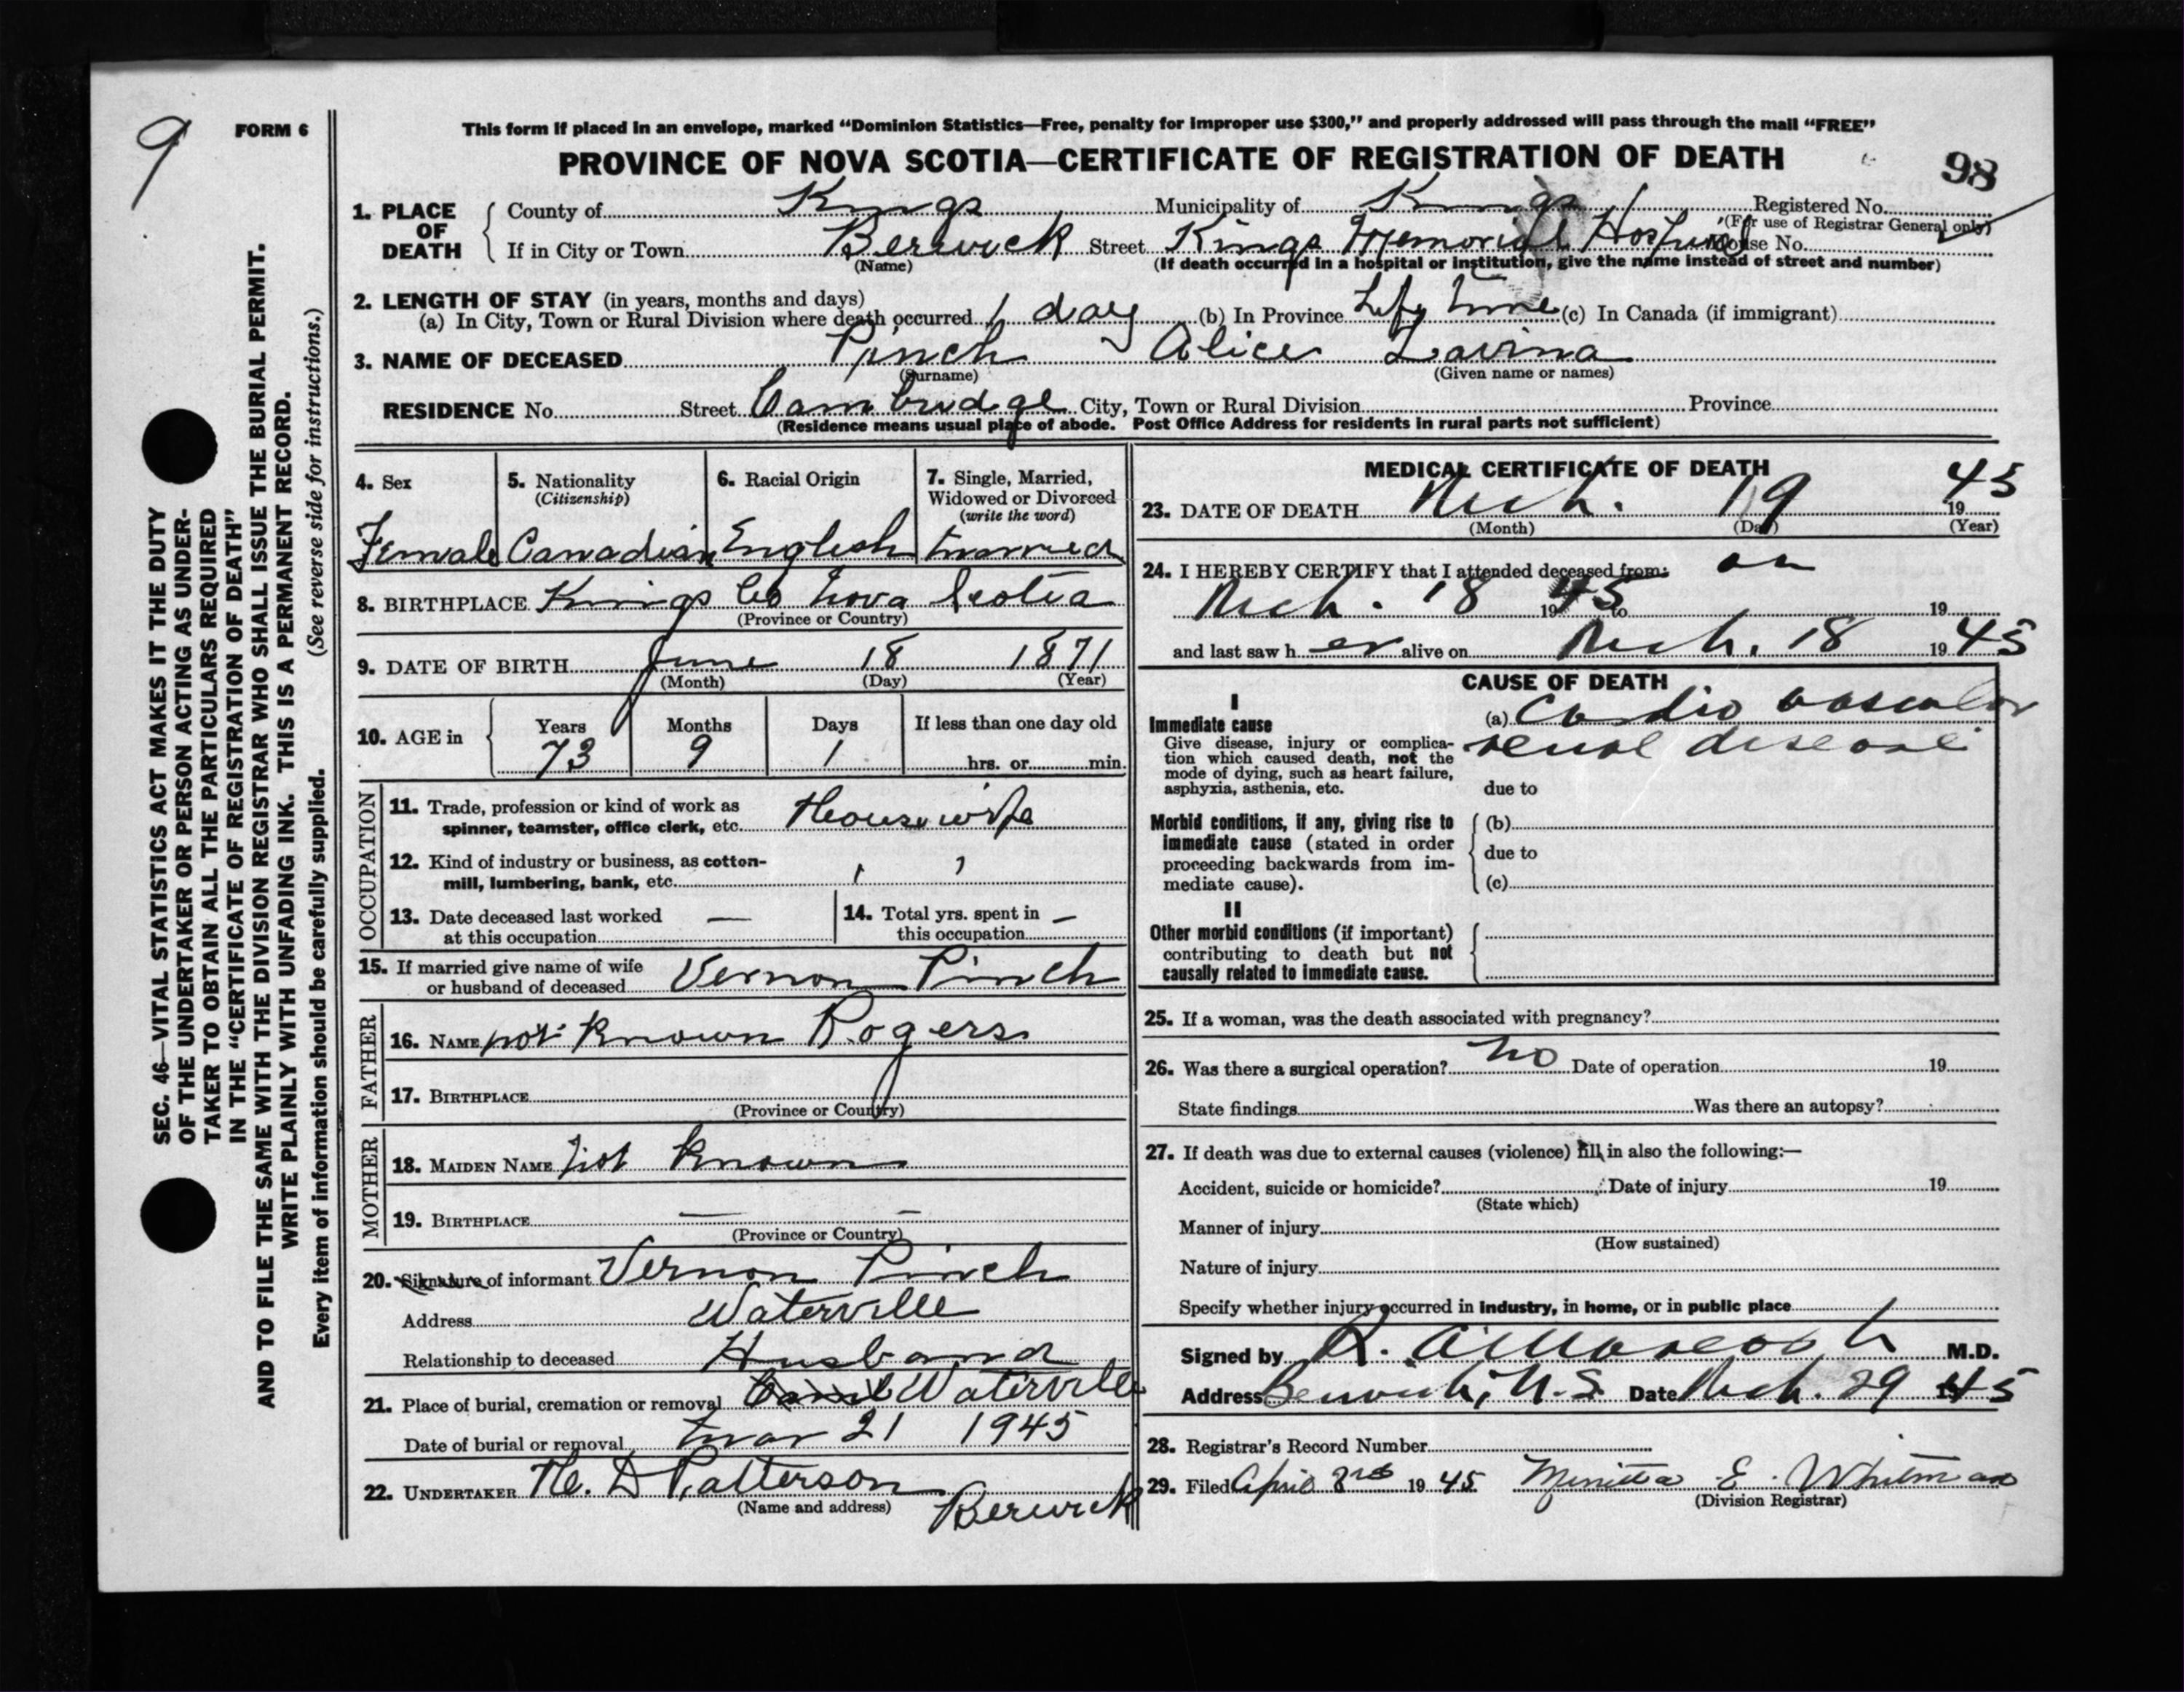 9
FORM 6
This form if placed in an envelope, marked “Dominion Statistics—Free, penalty for improper use $300,” and properly addressed will pass through the mail “FREE”
PROVINCE OF NOVA SCOTIA—CERTIFICATE OF REGISTRATION OF DEATH
98
1. PLACE OF DEATH
County of Kings Municipality of Kings Registered No.
(For use of Registrar General only)
If in City or Town Berwick Street Kings Memorial Hospital House No.
(Name) (If death occurred in a hospital or institution, give the name instead of street and number)
2. LENGTH OF STAY (in years, months and days)
(a) In City, Town or Rural Division where death occurred 1 day (b) In Province Life time (c) In Canada (if immigrant)
3. NAME OF DECEASED Pinch Alice Lavina
(Surname) (Given name or names)
RESIDENCE No. Street Cambridge City, Town or Rural Division Province
(Residence means usual place of abode. Post Office Address for residents in rural parts not sufficient)
4. Sex
Female
5. Nationality
(Citizenship)
Canadian
6. Racial Origin
English
7. Single, Married,
Widowed or Divorced
(write the word)
Married
8. BIRTHPLACE Kings Co Nova Scotia
(Province or Country)
9. DATE OF BIRTH June 18 1871
(Month) (Day) (Year)
10. AGE in
Years Months Days If less than one day old
73 9 1 hrs. or min.
OCCUPATION
11. Trade, profession or kind of work as
spinner, teamster, office clerk, etc. Housewife
12. Kind of industry or business, as cotton-
mill, lumbering, bank, etc. " "
13. Date deceased last worked —
at this occupation
14. Total yrs. spent in —
this occupation
15. If married give name of wife
or husband of deceased Vernon Pinch
FATHER
16. NAME not known Rogers
17. BIRTHPLACE
(Province or Country)
MOTHER
18. MAIDEN NAME Not known
19. BIRTHPLACE — —
(Province or Country)
20. Signature of informant Vernon Pinch
Address Waterville
Relationship to deceased Husband
21. Place of burial, cremation or removal Waterville
Date of burial or removal Mar 21 1945
22. UNDERTAKER H. D Patterson
(Name and address) Berwick
MEDICAL CERTIFICATE OF DEATH
23. DATE OF DEATH Mch. 19 1945
(Month) (Day) (Year)
24. I HEREBY CERTIFY that I attended deceased from: on
Mch. 18 1945 to 19
and last saw her alive on Mch. 18 1945
CAUSE OF DEATH
I
Immediate cause
Give disease, injury or complica-
tion which caused death, not the
mode of dying, such as heart failure,
asphyxia, asthenia, etc.
(a) Cardio vascular
renal disease
due to
Morbid conditions, if any, giving rise to
immediate cause (stated in order
proceeding backwards from im-
mediate cause).
(b)
due to
(c)
II
Other morbid conditions (if important)
contributing to death but not
causally related to immediate cause.
25. If a woman, was the death associated with pregnancy?
26. Was there a surgical operation? no Date of operation 19
State findings Was there an autopsy?
27. If death was due to external causes (violence) fill in also the following:—
Accident, suicide or homicide? Date of injury 19
(State which)
Manner of injury
(How sustained)
Nature of injury
Specify whether injury occurred in industry, in home, or in public place
Signed by R. A. M.D.
Address Berwick, N.S. Date Mch. 29 1945
28. Registrar's Record Number
29. Filed April 3rd 1945 E. Whitman
(Division Registrar)
SEC. 46—VITAL STATISTICS ACT MAKES IT THE DUTY
OF THE UNDERTAKER OR PERSON ACTING AS UNDER-
TAKER TO OBTAIN ALL THE PARTICULARS REQUIRED
IN THE “CERTIFICATE OF REGISTRATION OF DEATH”
AND TO FILE THE SAME WITH THE DIVISION REGISTRAR WHO SHALL ISSUE THE BURIAL PERMIT.
WRITE PLAINLY WITH UNFADING INK. THIS IS A PERMANENT RECORD.
Every item of information should be carefully supplied. (See reverse side for instructions.)